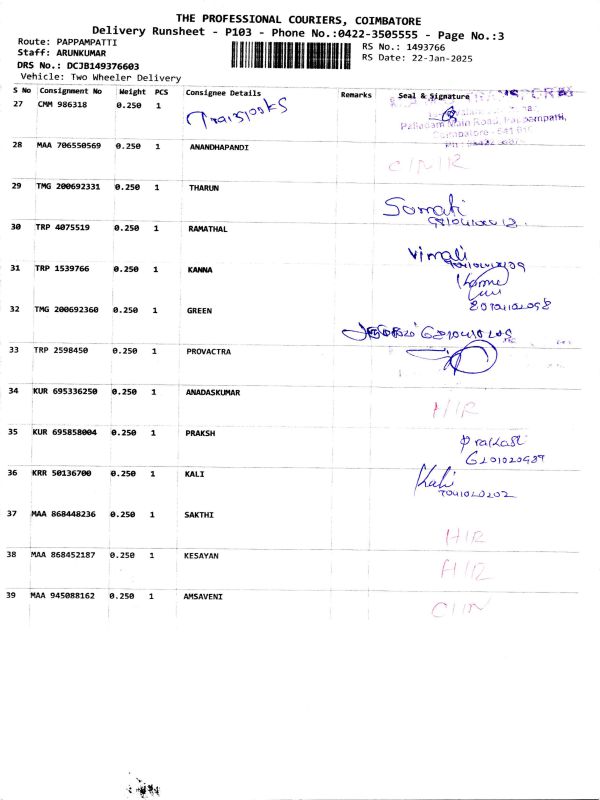 THE PROFESSIONAL COURIERS, COIMBATORE
Delivery Runsheet - P103 - Phone No.:0422-3505555 - Page No.:3
Route: PAPPAMPATTI
Staff: ARUNKUMAR
DRS No.: DCJB149376603
Vehicle: Two Wheeler Delivery
RS No.: 1493766
RS Date: 22-Jan-2025
S No Consignment No Weight PCS Consignee Details Remarks Seal & Signature
27 CMM 986318 0.250 1
Palladam Main Road, Pappampatti,
Coimbatore - 641
28 MAA 706550569 0.250 1 ANANDHAPANDI C/N/R
29 TMG 200692331 0.250 1 THARUN
30 TRP 4075519 0.250 1 RAMATHAL Vimali
31 TRP 1539766 0.250 1 KANNA
32 TMG 200692360 0.250 1 GREEN
33 TRP 2598450 0.250 1 PROVACTRA
34 KUR 695336250 0.250 1 ANADASKUMAR H/R
35 KUR 695858004 0.250 1 PRAKSH Prakash
36 KRR 50136700 0.250 1 KALI Kali
7041020202
37 MAA 868448236 0.250 1 SAKTHI H/R
38 MAA 868452187 0.250 1 KESAYAN H/R
39 MAA 945088162 0.250 1 AMSAVENI C/N